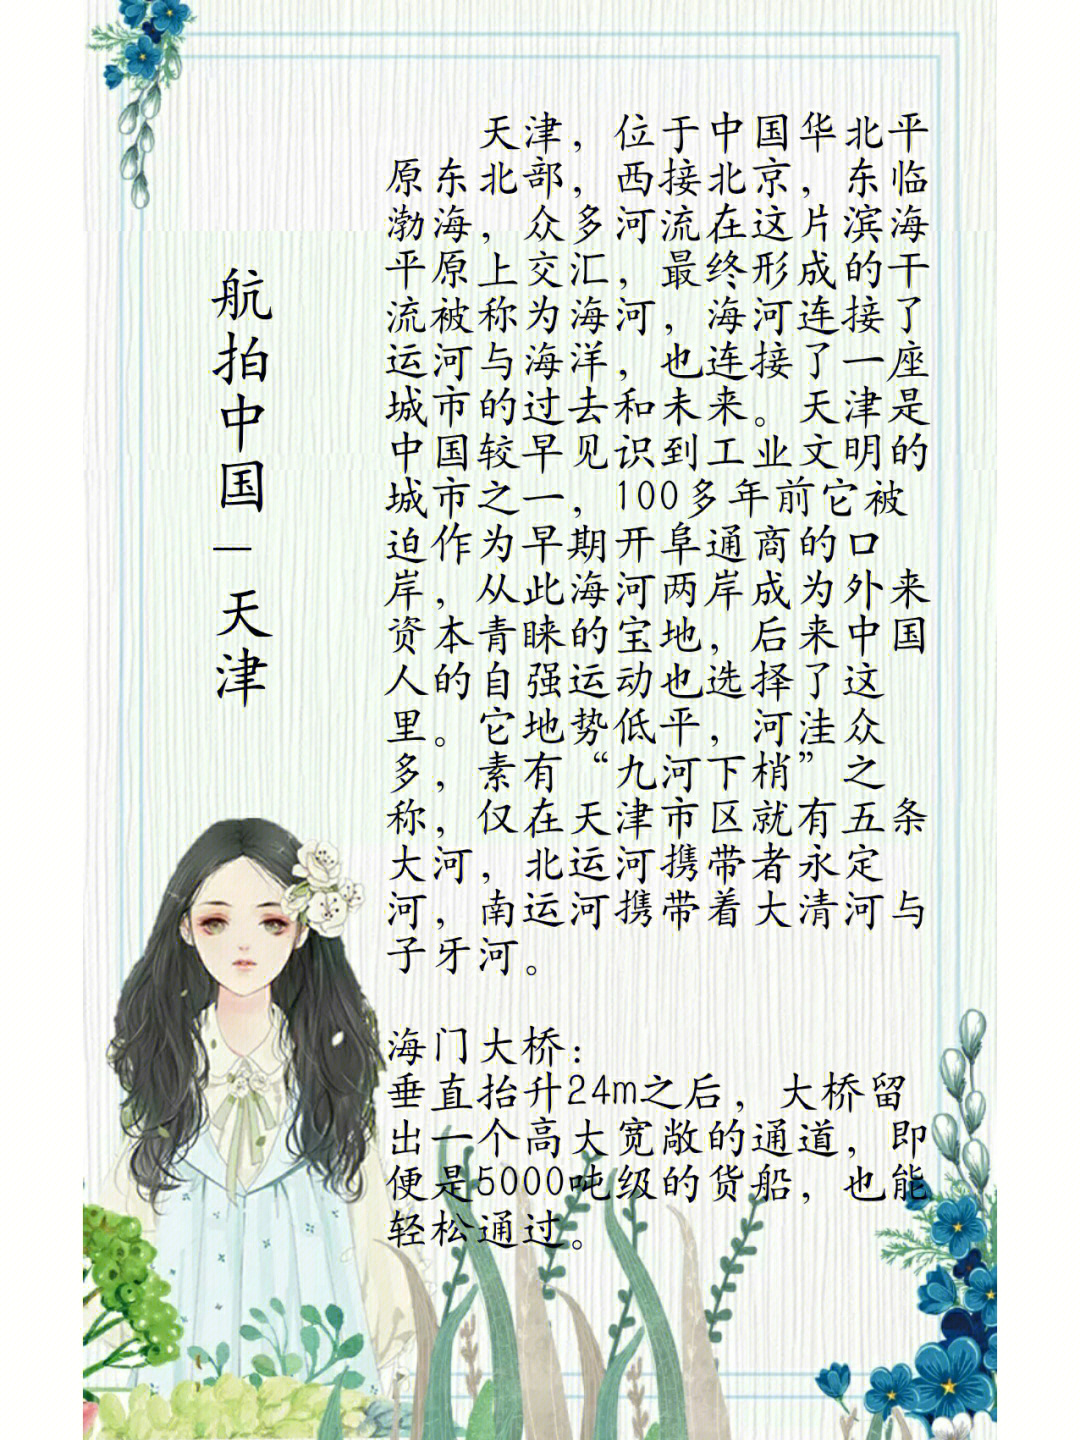 航拍中国—天津
天津，位于中国华北平
原东北部，西接北京，东临
渤海，众多河流在这片滨海
平原上交汇，最终形成的干
流被称为海河，海河连接了
运河与海洋，也连接了一座
城市的过去和未来。天津是
中国较早见识到工业文明的
城市之一，100多年前它被
迫作为早期开阜通商的口
岸，从此海河两岸成为外来
资本青睐的宝地，后来中国
人的自强运动也选择了这
里。它地势低平，河洼众
多，素有“九河下梢”之
称，仅在天津市区就有五条
大河，北运河携带者永定
河，南运河携带着大清河与
子牙河。
海门大桥：
垂直抬升24m之后，大桥留
出一个高大宽敞的通道，即
便是5000吨级的货船，也能
轻松通过。